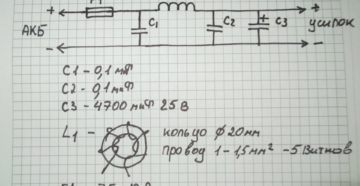 + +
АКБ C1 C2 + C3 усилок
- -
C1 - 0,1 мкф
C2 - 0,1 мкф
C3 - 4700 мкф 25 В
L1 - кольцо ⌀ 20мм
провод 1 - 1,5мм² - 5 витков